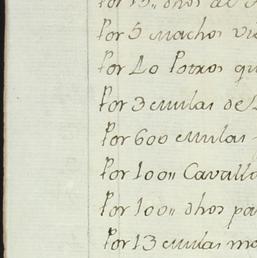 Por 15,, dhos de
Por 5 Machos
Por 40 Potros qu
Por 3 mulas de
Por 600 mulas
Por 100,, Cavallo
Por 100,, dhos pa
Por 13 mulas ma